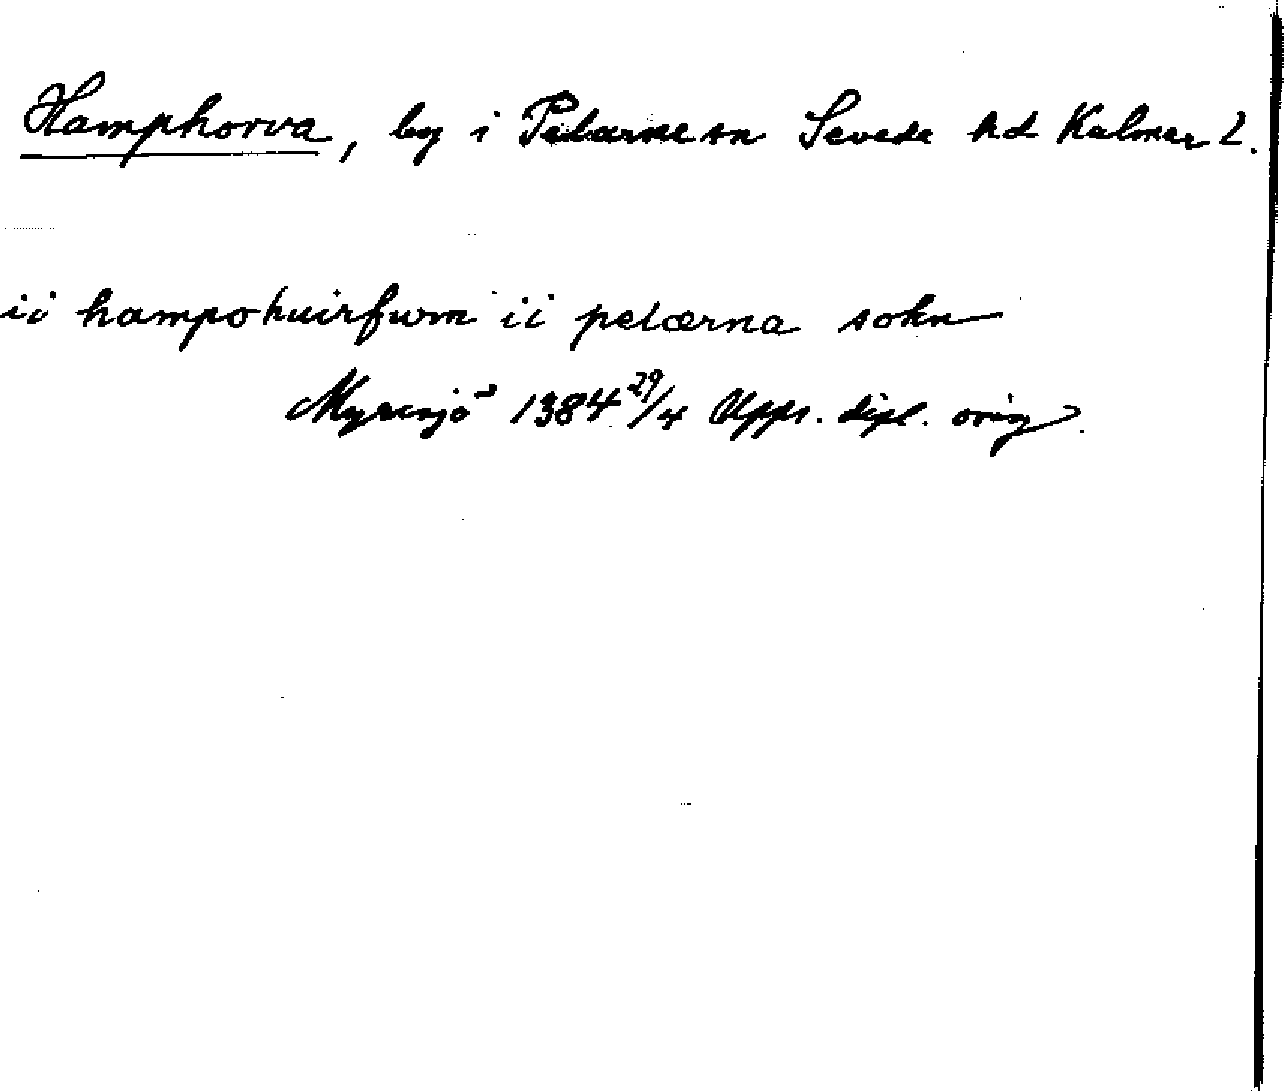 Hamphorva, by i Pelarne sn Sevede hd Kalmar L.
ii hampohuirfwm ii pelærna sokn
Myresjö 1384 29/4 Upps. dipl. orig.